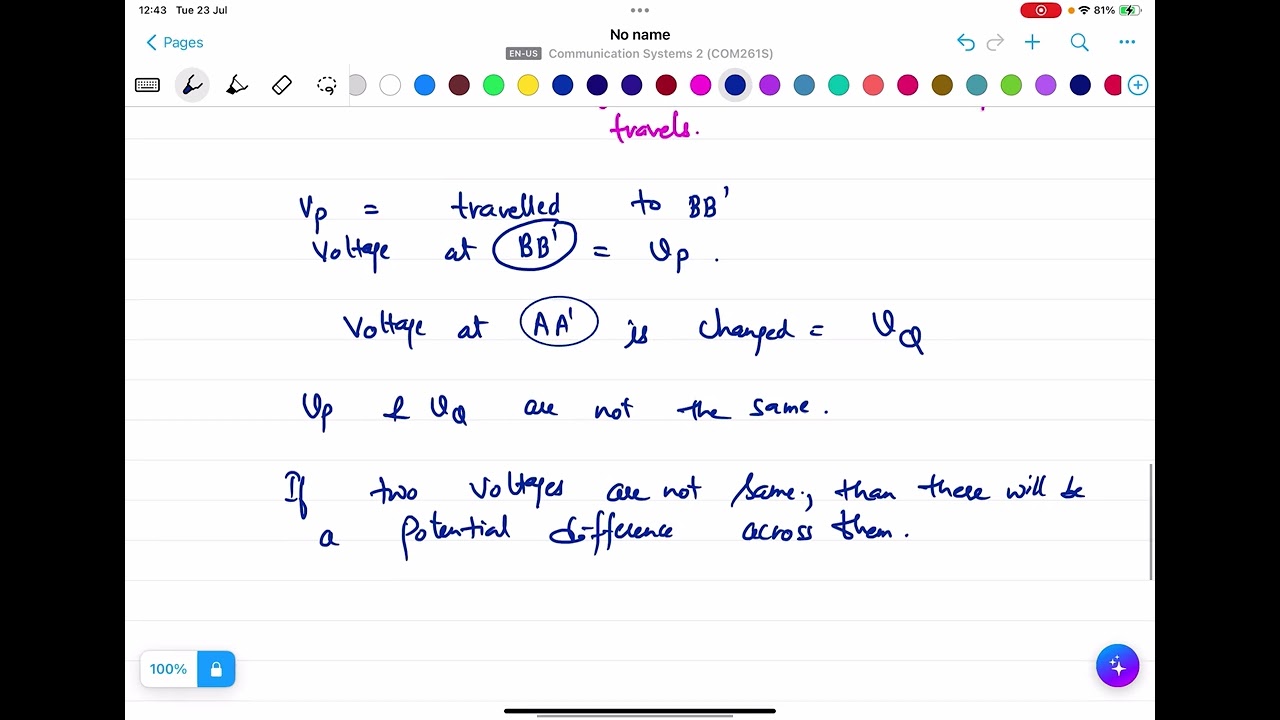 12:43 Tue 23 Jul
81%
Pages
No name
EN-US Communication Systems 2 (COM261S)
travels.
Vp = travelled to BB'
Voltage at BB' = Vp .
Voltage at AA' is changed = VQ
Vp & VQ are not the same.
If two voltages are not same, than there will be
a potential difference across them.
100%